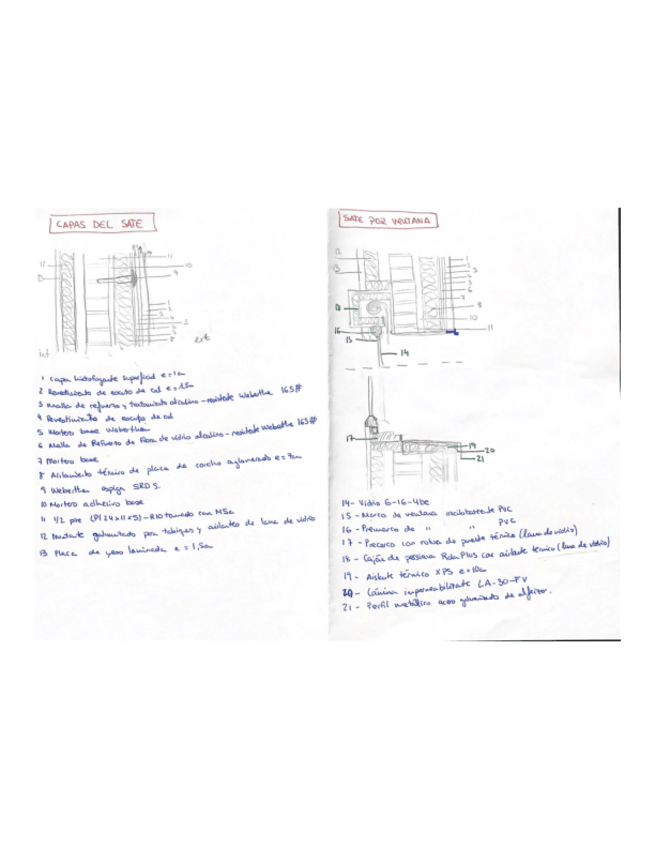 CAPAS DEL SATE
11
10
9
11
13
1
2
3
int
ext
1 Capa hidrofugante superficial e=1cm
2 Revestimiento de escato de cal e=1,5cm
3 Malla de refuerzo y tratamiento alcalino-resistente Webertherm 163#
4 Revestimiento de de cal
5 Mortero base Webertherm
6 Malla de Refuerzo de fibra de vidrio alcalino-resistente Webertherm 163#
7 Mortero base
8 Aislamiento térmico de placa de corcho aglomerado e=7cm
9 Webertherm espiga SRD S.
10 Mortero adhesivo base
11 1/2 pie (P/24x11x5)-R10 tomado con M5a
12 Montante galvanizado por tabiques y aislantes de lana de vidrio
13 Placa de yeso laminada e=1,5cm
SATE POR VENTANA
12
13
1
2
3
4
5
6
7
8
10
11
18
16
15
14
17
19
20
21
14- Vidrio 6-16-4be
15- Marco de ventana oscilobatente PVC
16- Premarco de " " PVC
17- Precerco con rotura de puente térmico (lana de vidrio)
18- Cajón de persiana RolaPlus con aislante térmico (lana de vidrio)
19- Aislante térmico XPS e=10cm
20- Lámina impermeabilizante LA-30-TV
21- Perfil metálico acero galvanizado de alfeizar.